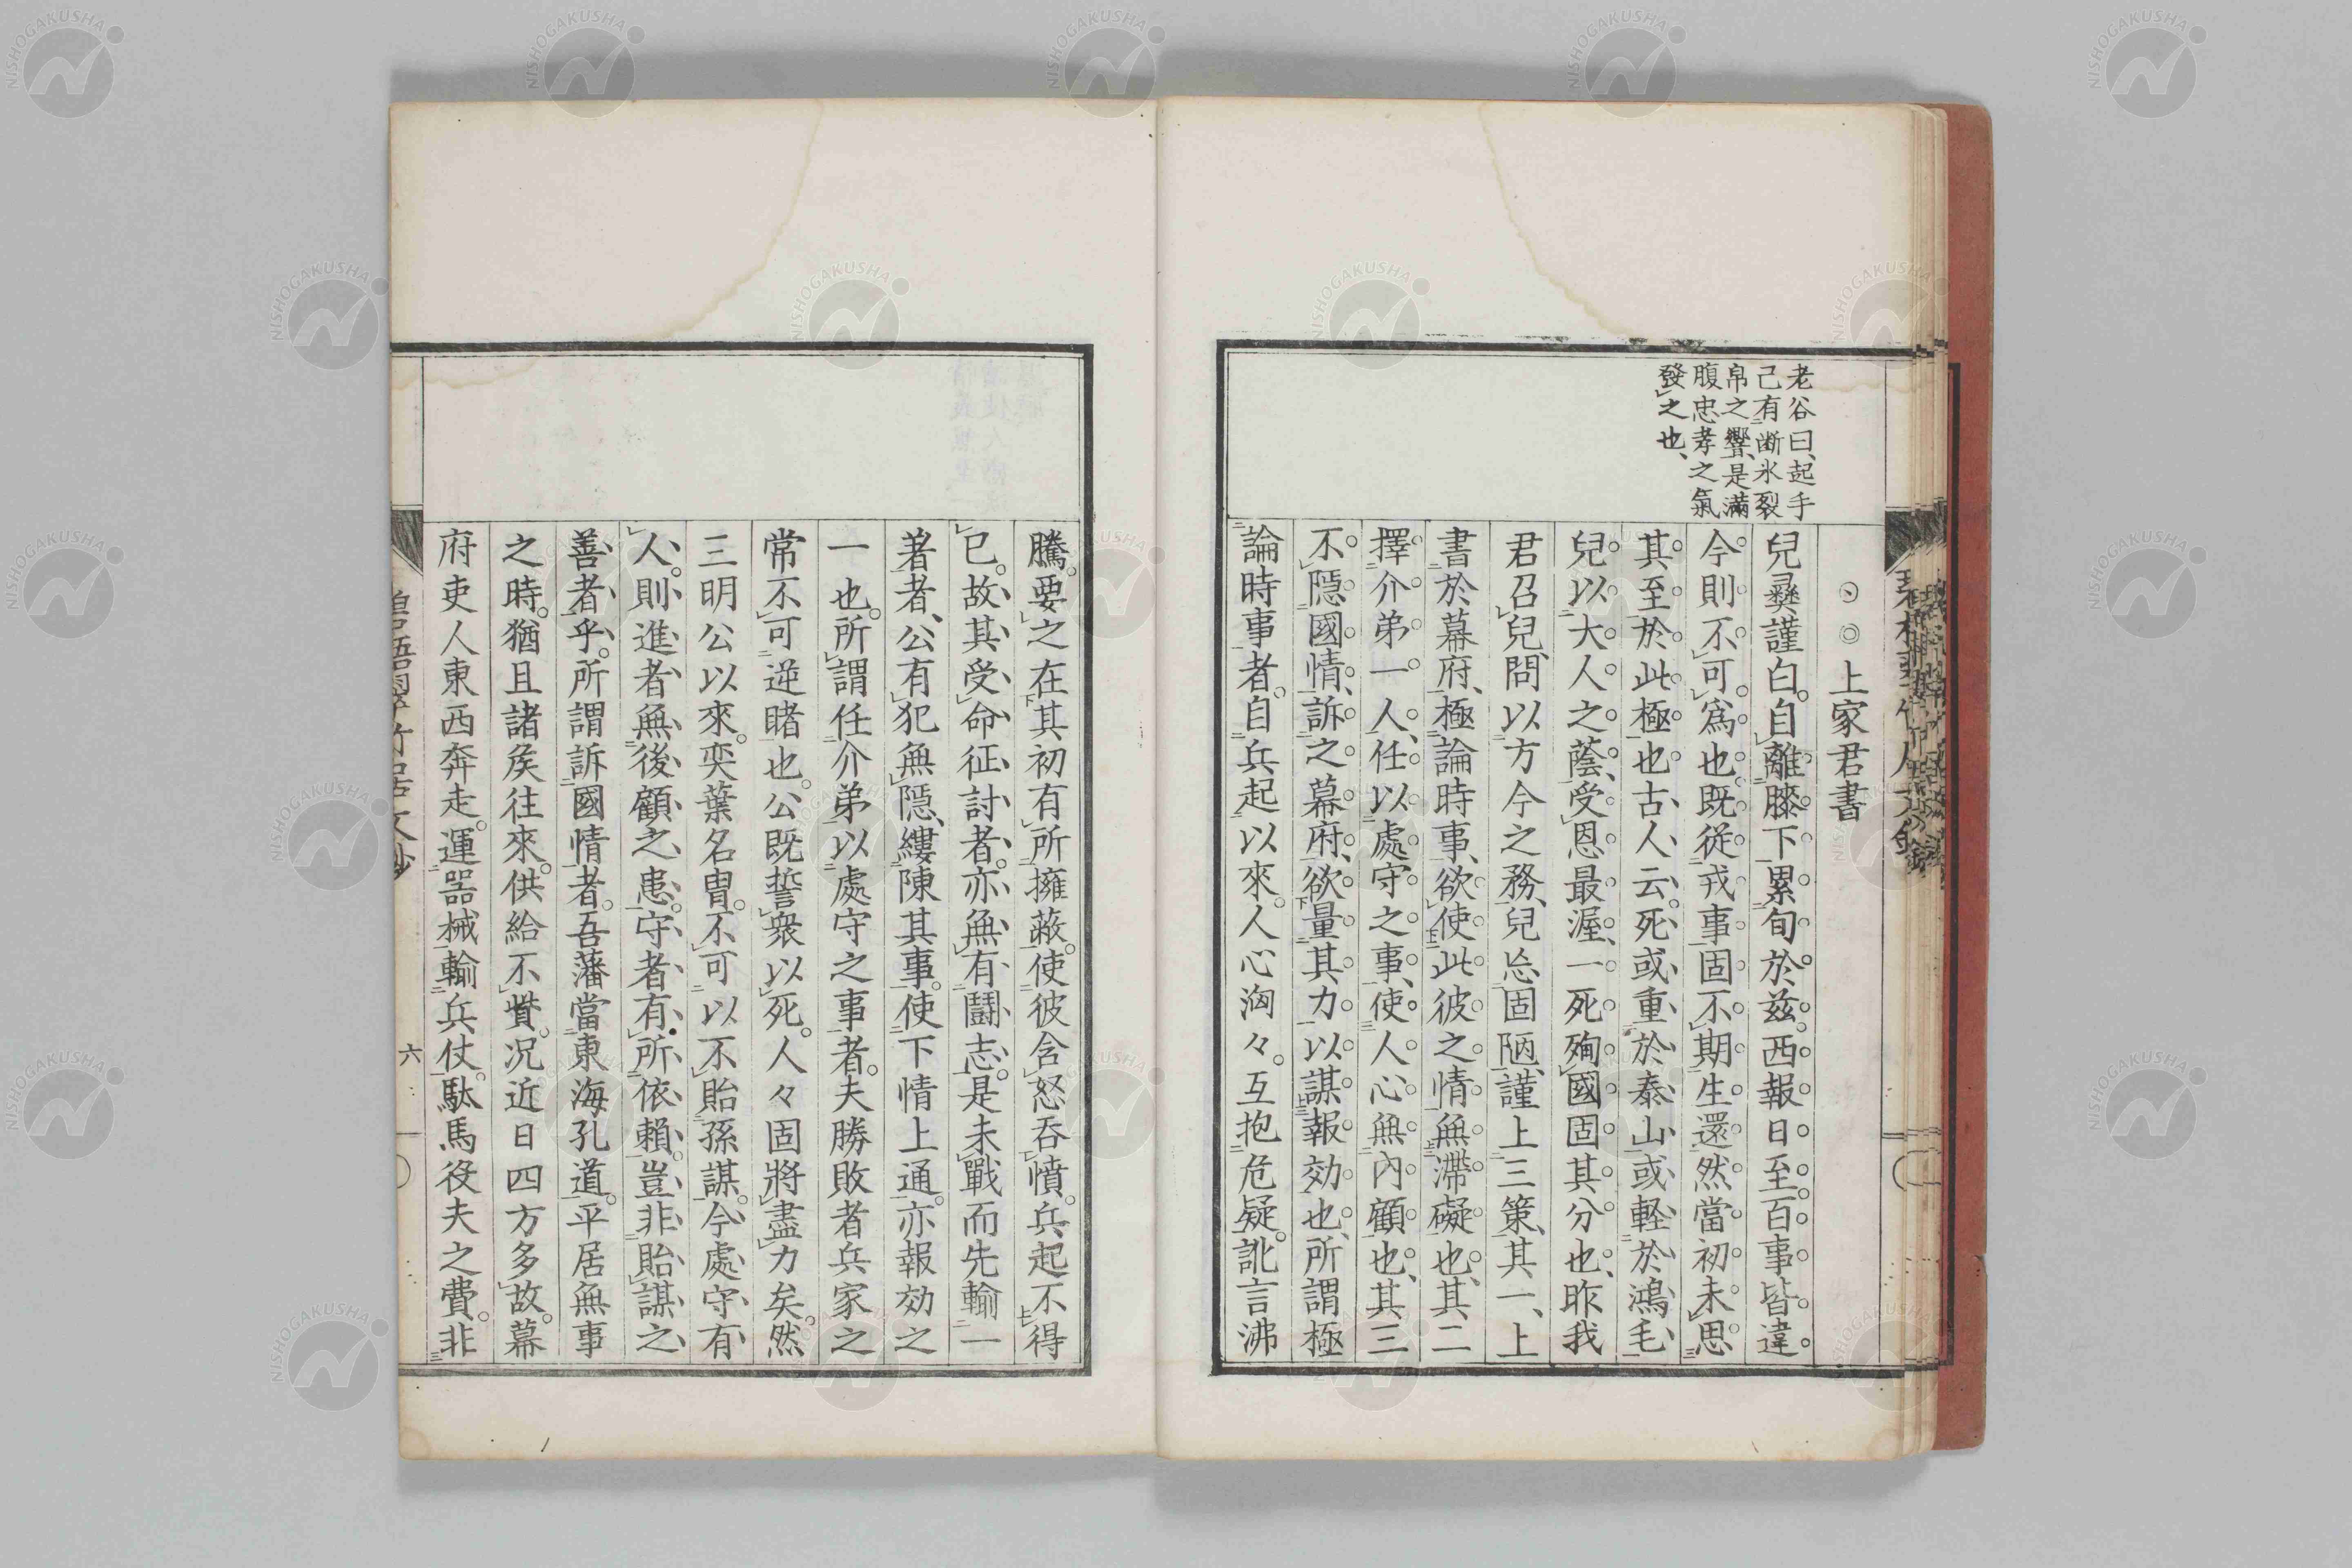 老谷曰、起手
己有断氷裂
帛之響、是滿
腹忠孝之氣
發之也、
上家君書
兒彝謹白。自離膝下累旬於茲。西報日至。百事皆違。
今則不可爲也。既從戎事。固不期生還。然當初未思
其至於此極也。古人云。死或重於泰山。或輕於鴻毛
兒以大人之蔭、受恩最渥、一死殉國固其分也、昨我
君召兒、問以方今之務、兒忘固陋、謹上三策、其一、上
書於幕府、極論時事、欲使此彼之情無滯礙也、其二
擇介弟一人、任以處守之事、使人心無內顧也、其三
不隱國情、訴之幕府、欲量其力以謀報効也、所謂極
論時事者。自兵起以來。人心洶々。互抱危疑。訛言沸
騰。要之在其初有所擁蔽。使彼含怒呑憤。兵起不得
已。故其受命征討者。亦無有鬪志。是未戰而先輸一
著者、公有犯無隱、縷陳其事。使下情上通。亦報効之
一也。所謂任介弟以處守之事者。夫勝敗者兵家之
常不可逆睹也。公既誓衆以死。人々固將盡力矣。然
三明公以來。奕葉名冑。不可以不貽孫謀。今處守有
人。則進者無後顧之患。守者有所依賴。豈非貽謀之
善者乎。所謂訴國情者。吾藩當東海孔道。平居無事
之時。猶且諸矦往來。供給不貲。况近日四方多故。幕
府吏人東西奔走。運器械輸兵仗。駄馬役夫之費。非
六
NISHOGAKUSHA